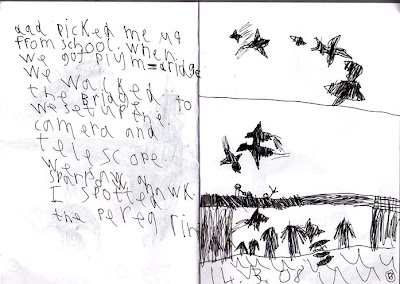 dad picked me up
from school. when
we got plym=bridge
we walked
the bridge to
we set up the
camera and
telescope
we
sparrow ahwk
I spotted
the pereg rin
14.3.08